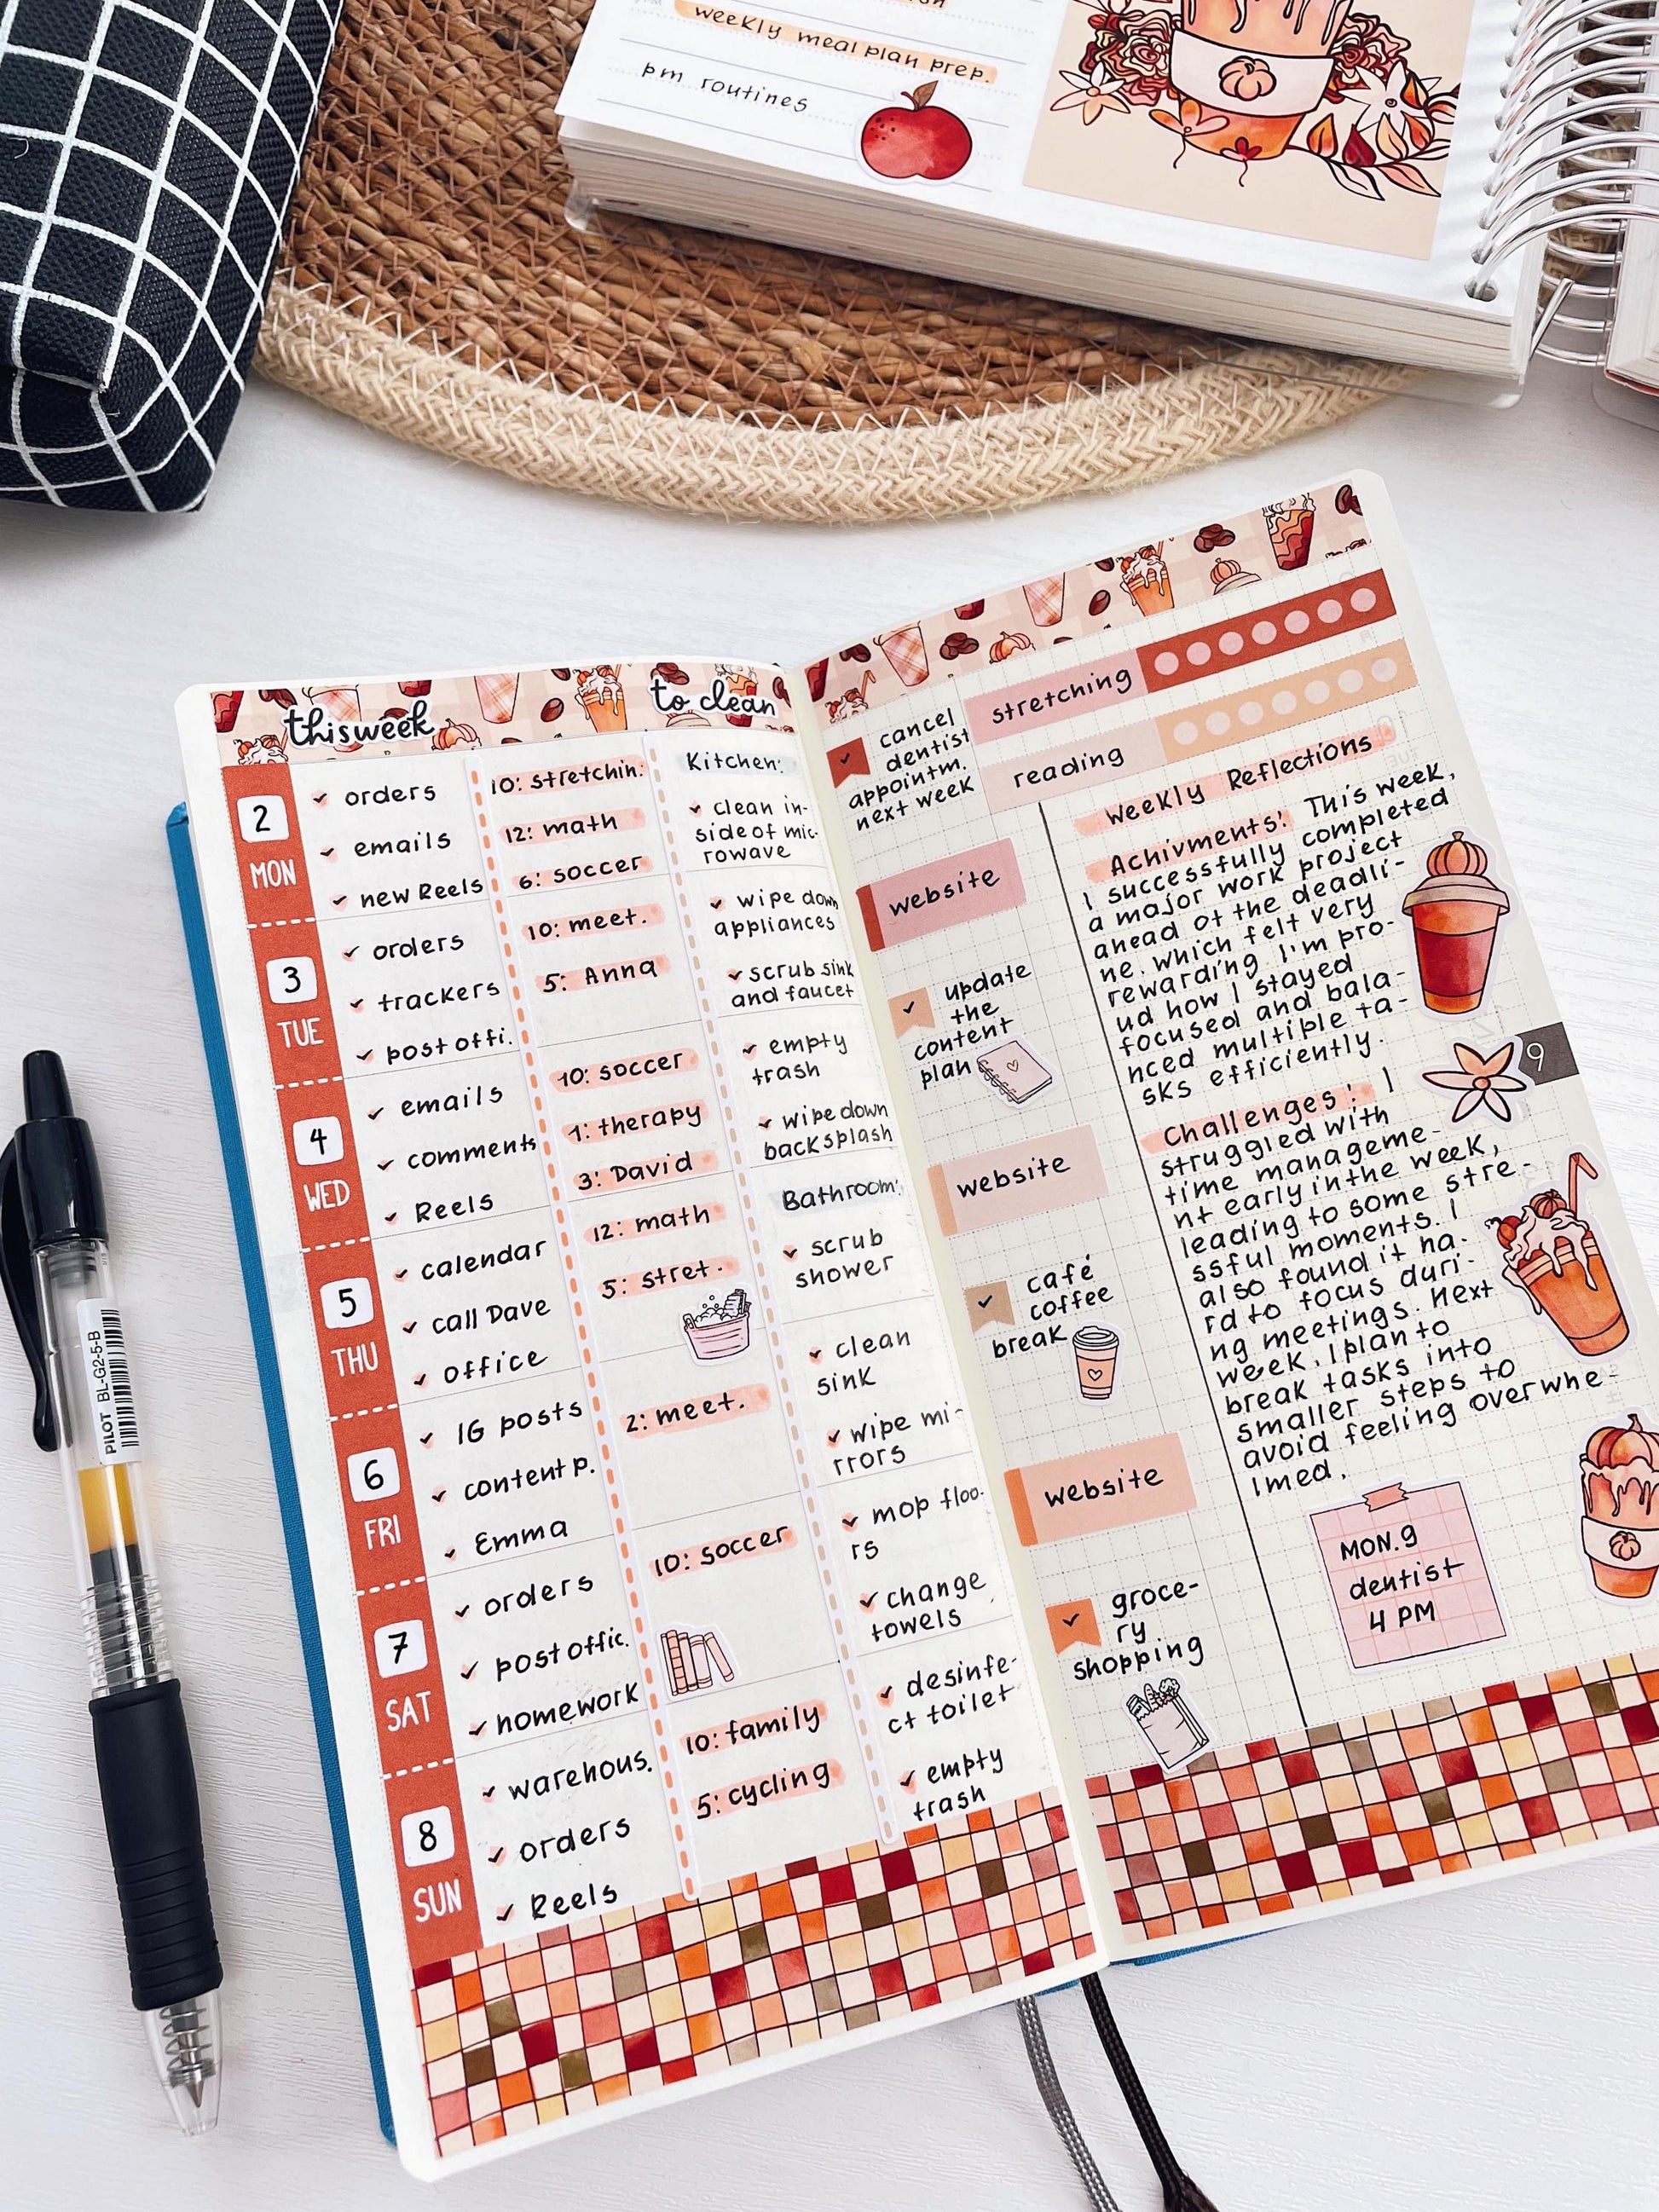 weekly meal plan prep.
pm routines
this week
to clean
2
MON
orders
emails
new Reels
3
TUE
orders
trackers
post offi.
4
WED
emails
comments
Reels
5
THU
calendar
call Dave
office
6
FRI
IG posts
content p.
Emma
7
SAT
orders
post offic.
homework
8
SUN
warehous.
orders
Reels
10: stretchin.
12: math
6: soccer
10: meet.
5: Anna
10: soccer
1: therapy
3: David
12: math
5: stret.
2: meet.
10: soccer
10: family
5: cycling
Kitchen:
clean in-
side of mic-
rowave
wipe down
appliances
scrub sink
and faucet
empty
trash
wipe down
backsplash
Bathroom:
scrub
shower
clean
sink
wipe mi-
rrors
mop floo-
rs
change
towels
desinfe-
ct toilet
empty
trash
cancel
dentist
appointm.
next week
website
update
the
content
plan
website
café
coffee
break
website
groce-
ry
shopping
stretching
reading
Weekly Reflections
Achivments: This week,
I successfully completed
a major work project
ahead of the deadli-
ne. which felt very
rewarding. I'm pro-
ud how I stayed
focused and bala-
nced multiple ta-
sks efficiently.
Challenges: I
struggled with
time manageme-
nt early in the week,
leading to some stre-
ssful moments. I
also found it ha-
rd to focus duri-
ng meetings. Next
week, I plan to
break tasks into
smaller steps to
avoid feeling overwhe-
lmed.
MON.9
dentist
4 PM
9
PILOT BL-G2-5-B